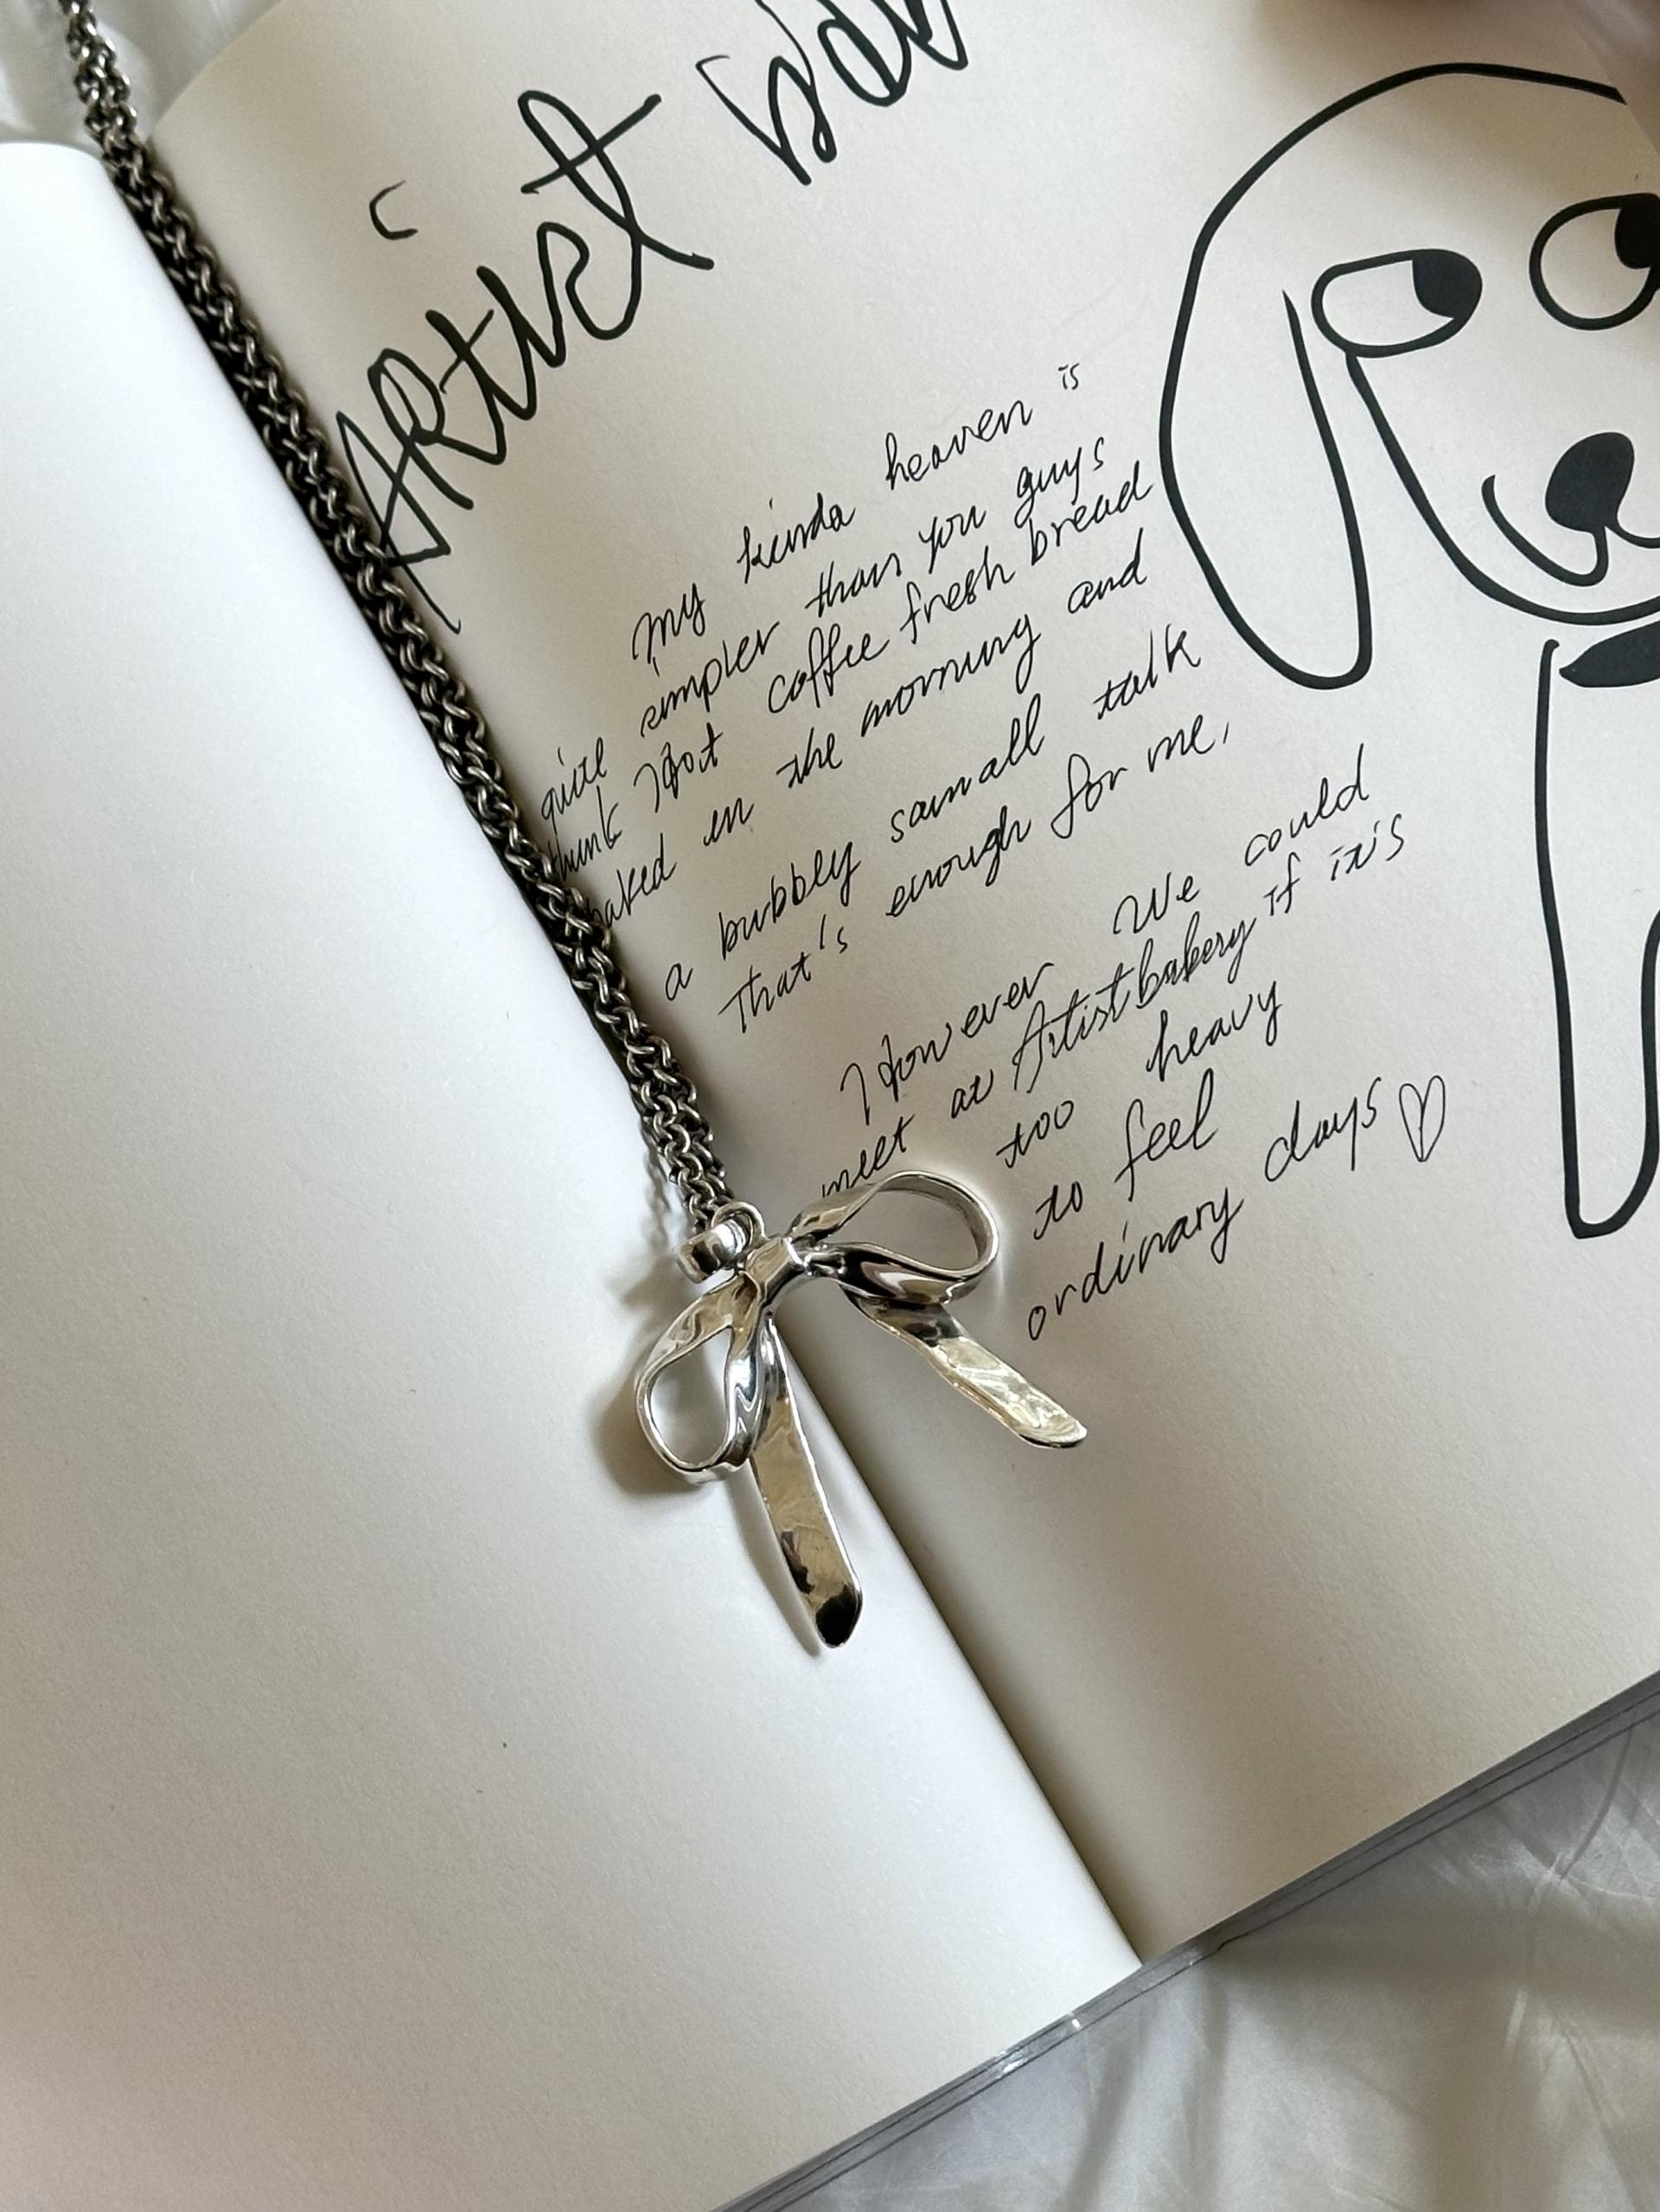 ARtist
my kinda heaven is
quite simpler than you guys
think Hot coffee fresh bread
baked in the morning and
a bubbly samall talk
That's enough for me,
However We could
meet at Artistbakery if it's
too heavy
to feel
ordinary days